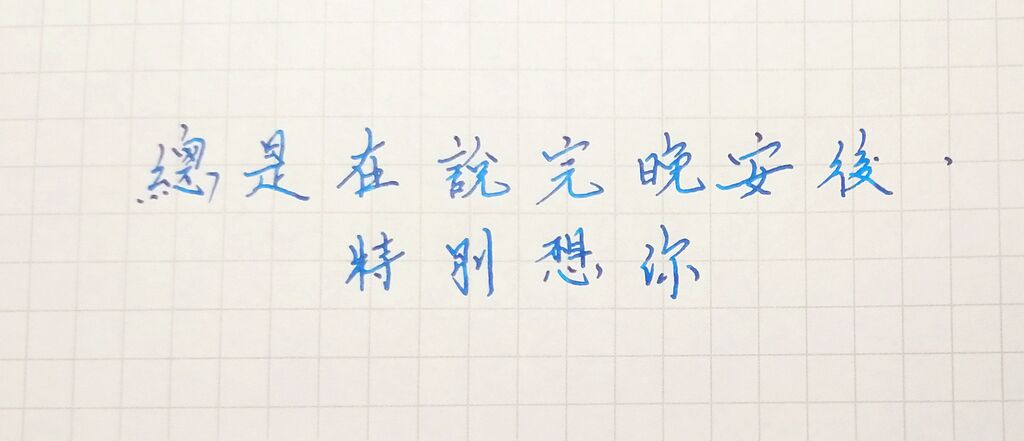 總是在說完晚安後，
特別想你